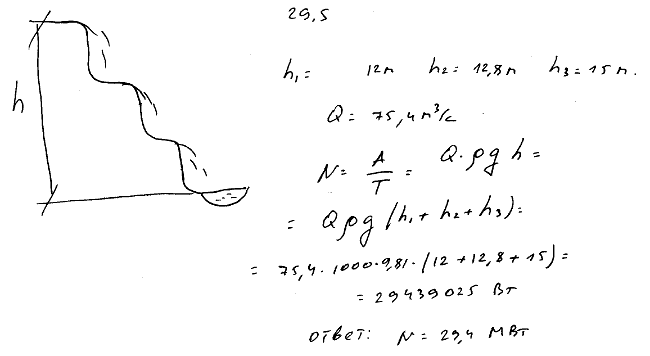 29,5
h₁ = 12м h₂ = 12,8м h₃ = 15 м.
Q = 75,4 м³/с
h
N = A/T = Q·ρg h =
= Qρg (h₁ + h₂ + h₃) =
= 75,4 · 1000 · 9,81 · (12 + 12,8 + 15) =
= 29439025 Вт
ответ: N = 29,4 МВт